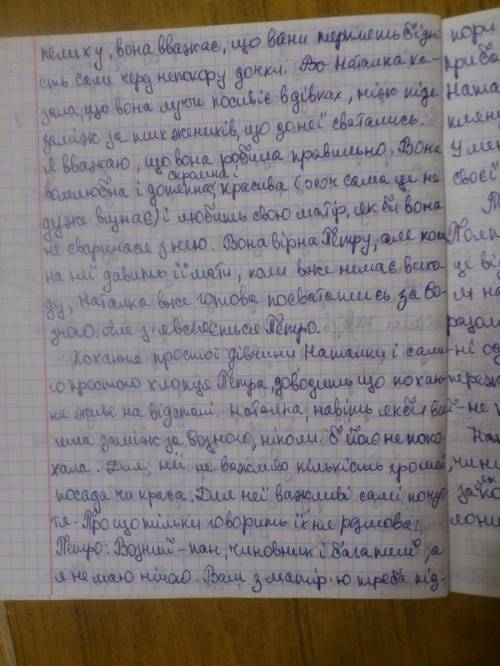 пелиху, вона вважає, що вони терплять бідні-
сть саме через непокору доньки. Бо Наталка ка-
зала, що вона лучче посивіє в дівках, ніж піде
заміж за тих женихів, що до неї сватались.
Я вважаю, що вона робила правильно. Вона
скромна і
волелюбна і дотепна, красива (хоч сама це не
дуже визнає) і любить свою матір, як би вона
не сварилася з нею. Вона вірна Петру, але коли
на неї давить її мати, коли вже немає вихо-
ду, Наталка вже готова посвататись за Во-
зного. Але з'являється Петро.
Кохання простої дівчини Наталки і само-
го простого хлопця Петра, доводить що кохан-
ня живе на відстані. Наталка, навіть якби вий-
шла заміж за возного, ніколи б його не поко-
хала. Для неї не важливо кількість грошей
посада чи краса. Для неї важливі самі почут-
тя. Про що тільки говорить їхня розмова!
Петро: Возний – пан, чиновник і багатий, а
я не маю нічого. Вам з матір'ю треба під-